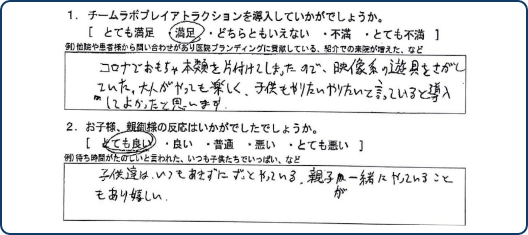 1．チームラボプレイアトラクションを導入していかがでしょうか。
[ とても満足 ・満足 ・どちらともいえない ・不満 ・とても不満 ]
例)他院や患者様から問い合わせがあり医院ブランディングに貢献している、紹介での来院が増えた、など
コロナでおもちゃ本類を片付けてしまったので、映像系の遊具をさがし
ていた。大人がやっても楽しく、子供もやりたいやりたいと言っていると導入
してよかったと思います。
2．お子様、親御様の反応はいかがでしたでしょうか。
[ とても良い ・良い ・普通 ・悪い ・とても悪い ]
例)待ち時間がたのしいと言われた、いつも子供たちでいっぱい、など
子供達は、いつもあきずにずっとやっている。親子が一緒にやっていること
もあり嬉しい。